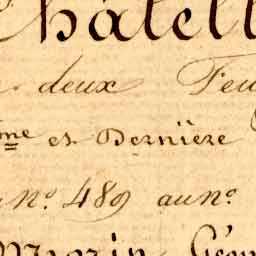 Châtell
deux Feu
me et Dernière
No. 489 au no.
Morin, Géom